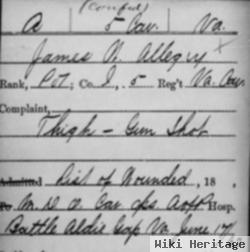 (Confed)
A 5 Cav. Va.
James N. Allegry
Rank, Pvt; Co. I, 5 Reg't Va. Cav.
Complaint,
Thigh - Gun Shot
Admitted List of Wounded, 18 ,
To M. D. a Cav Cps Hosp.
Battle Aldie Gap Va June 17/
Wiki Heritage